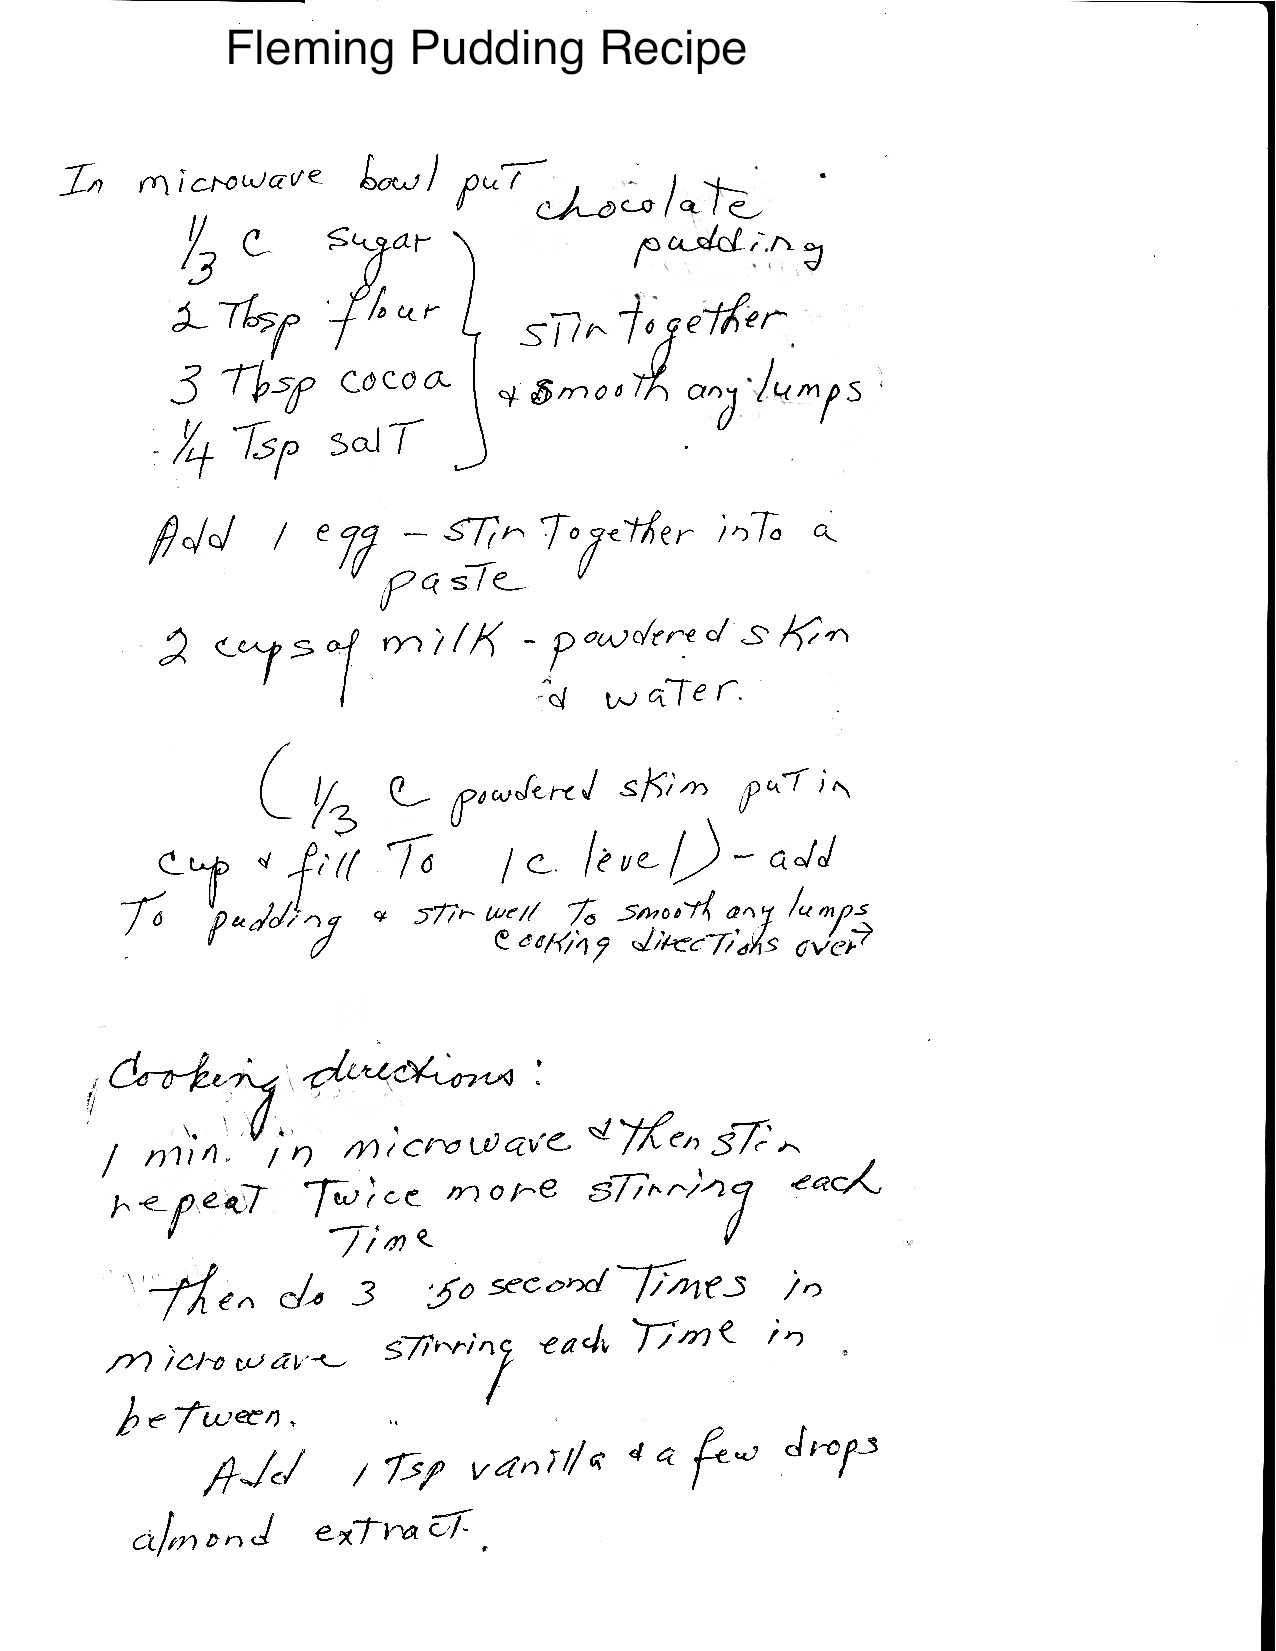 Fleming Pudding Recipe
In microwave bowl put
chocolate
pudding
1/3 C sugar
2 Tbsp flour
3 Tbsp cocoa
1/4 Tsp salt
stir together
& smooth any lumps
Add 1 egg – stir together into a
paste
2 cups of milk - powdered skim
& water.
(1/3 C powdered skim put in
cup & fill to 1 c. level) – add
to pudding & stir well to smooth any lumps
cooking directions over →
Cooking directions:
1 min. in microwave & then stir
repeat twice more stirring each
time
then do 3 50 second times in
microwave stirring each time in
between.
Add 1 Tsp vanilla & a few drops
almond extract.